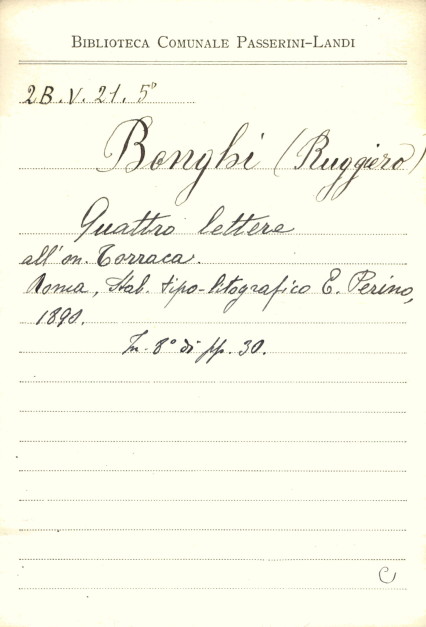 BIBLIOTECA COMUNALE PASSERINI-LANDI
2B.V.21.5°
Bonghi (Ruggiero)
Quattro lettere
all'on. Torraca.
Roma, Stab. tipo-litografico E. Perino,
1890.
In-8° di pp. 30.
C